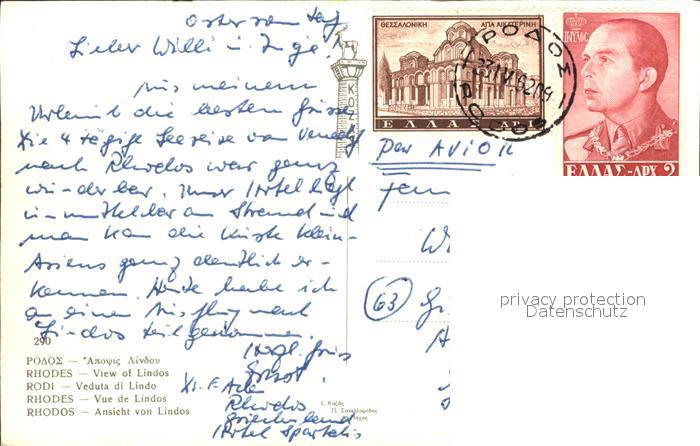 Ostersonntag
Lieber Willi u. Inge!
Aus meinem
Urlaub die besten Grüsse
Die 4 tägige Seereise von Venedig
nach Rhodos war ganz
wunderbar. Unser Hotel liegt
unmittelbar am Strand und
man kann die Küste Klein-
Asiens ganz deutlich er-
kennen. Heute habe ich
an einem Ausflug nach
Lindos teilgenommen.
Hzgl. Grüss
Rhodos
Griechenland
Hotel Spartalis
290
ΡΟΔΟΣ — Ἄποψις Λίνδου
RHODES — View of Lindos
RODI — Veduta di Lindo
RHODES — Vue de Lindos
RHODOS — Ansicht von Lindos
ΘΕΣΣΑΛΟΝΙΚΗ ΑΓΙΑ ΑΙΚΑΤΕΡΙΝΗ
ΕΛΛΑΣ
ΡΟΔΟΣ
ΠΑΥΛΟΣ
ΕΛΛΑΣ-ΔΡΧ 2
Par AVION
63
privacy protection
Datenschutz